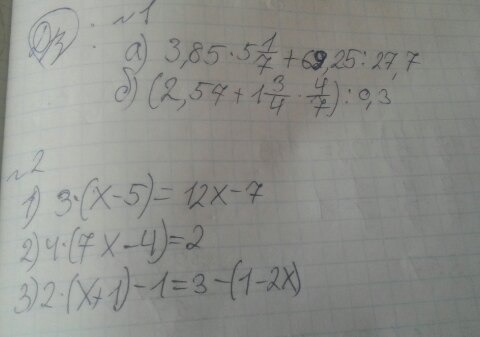 ДЗ: №1
а) 3,85 · 5 1/7 + 69,25 : 27,7
б) (2,57 + 1 3/4 · 4/7) : 0,3
№2
1) 3·(x-5) = 12x-7
2) 4·(7x-4) = 2
3) 2·(x+1)-1 = 3-(1-2x)